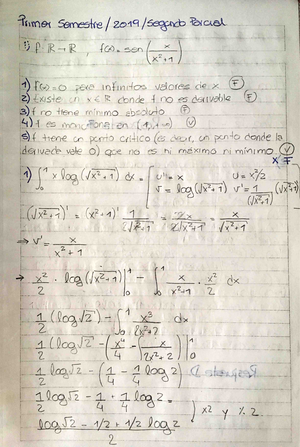 Primer Semestre/2019/Segundo Parcial
1) f: R → R, f(x) = sen(x/(x²+1))
1) f(x)=0 para infinitos valores de x (F)
2) Existe un x∈R donde f no es derivable (F)
3) f no tiene mínimo absoluto (F)
4) f es monótona en (1,+∞) (V)
5) f tiene un punto crítico (es decir, un punto donde la
derivada vale 0) que no es ni máximo ni mínimo (V)
x F
1) ∫₀¹ x log(√(x²+1)) dx = { u'=x u=x²/2
v = log(√(x²+1)) v' = 1/(√(x²+1)) (√(x²+1))'
(√(x²+1))' = (x²+1)' 1/(2√(x²+1)) = 2x/(2√(x²+1)) = x/√(x²+1)
⇒ v' = x/(x²+1)
→ x²/2 · log(√(x²+1)) |₀¹ - ∫₀¹ x/(x²+1) · x²/2 dx
1/2 (log√2) - ∫₀¹ x³/(2x²+2) dx
1/2 (log√2 - (x²/4 - ∫ x/(2x²+2)) |₀¹
1/2 log√2 - (1/4 - 1/4 log2)
1/2 log√2 - 1/4 + 1/4 log2 =
} x2 y % 2
(log√2 - 1/2 + 1/2 log2)/2